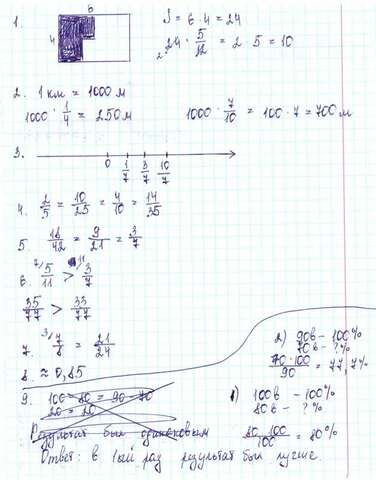 1.
6
4
S = 6 · 4 = 24
24 · 5/12 = 2 · 5 = 10
2
2. 1 км = 1000 м
1000 · 1/4 = 250 м
1000 · 7/10 = 100 · 7 = 700 м
3.
0 1/7 3/7 10/7
4. 2/5 = 10/25 = 4/10 = 14/35
5. 18/42 = 9/21 = 3/7
6. 7/ 5/11 > 11/ 3/7
35/77 > 33/77
7. 3/ 7/8 = 21/24
8. ≈ 0,85
9. 100 - 80 = 90 - 70
20 = 20
Результат был одинаковым
1) 100в – 100%
80в – ?%
80·100/100 = 80%
2) 90в – 100%
70в – ?%
70·100/90 = 77,7%
Ответ: в 1ый раз результат был лучше.